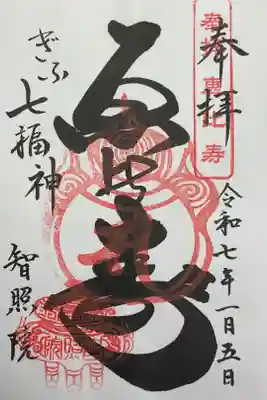 奉拝
令和七年一月五日
恵比寿
ぎふ七福神
智照院